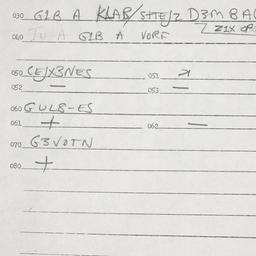 030 G1B A KLAB/STTEJZ D3M BA
Z1X
060 A G1B A VORF
050 CEJX3NES 051
052 — 053 —
060 GULB-ES
061 + 062 —
070 G3VOTN
080 +